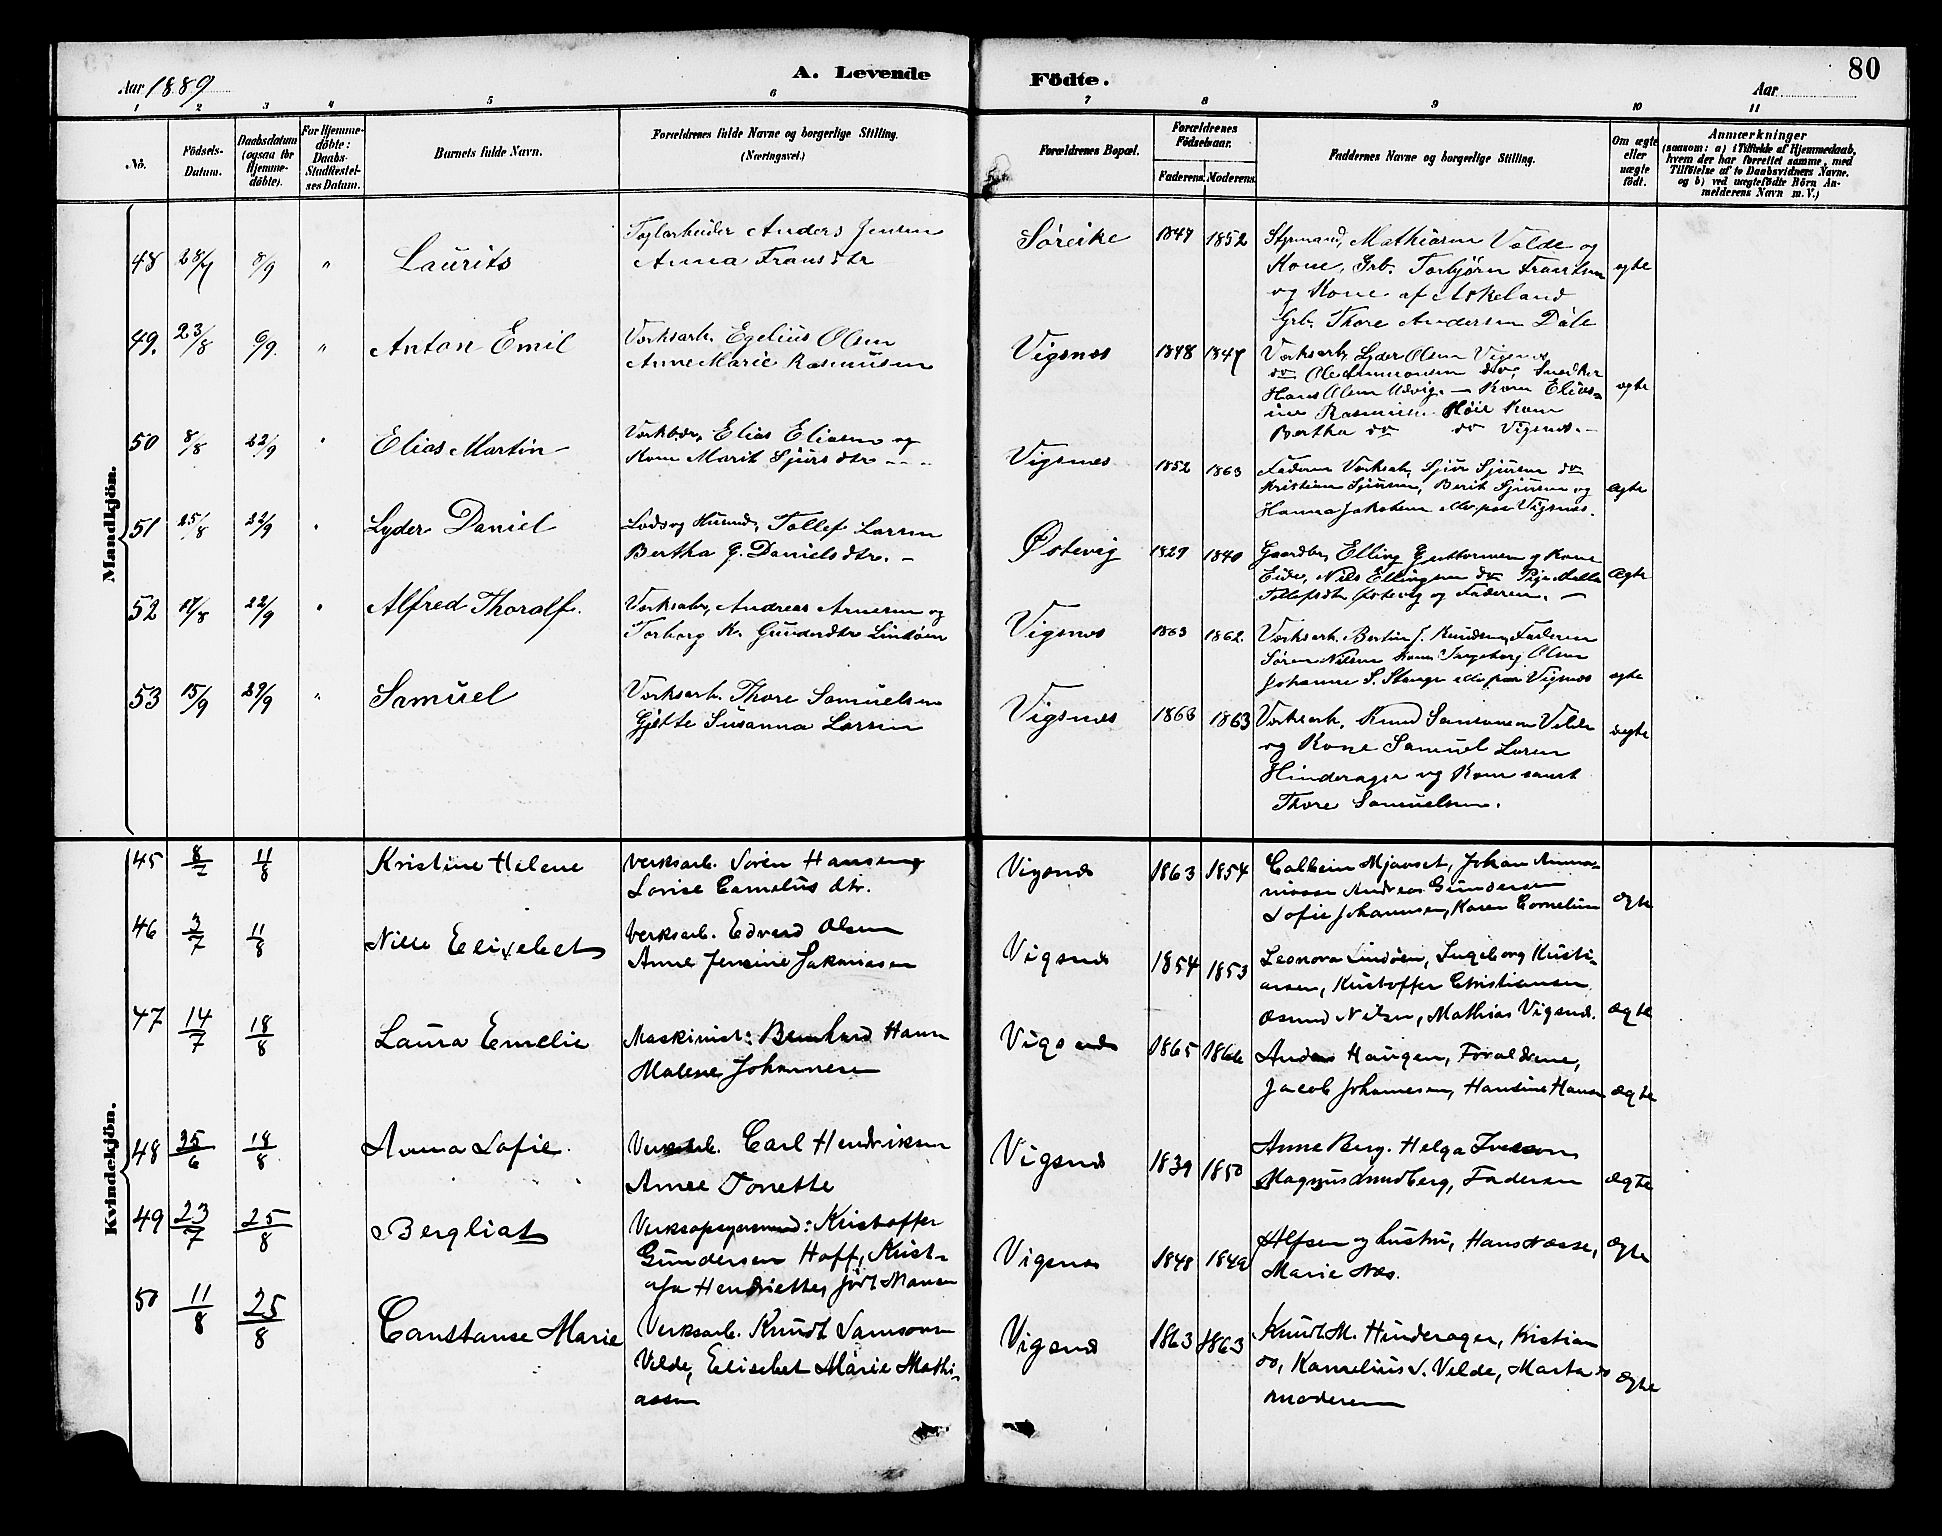 80
Aar 1889
A. Levende Födte.
Aar
1 2 3 4 5 6 7 8 9 10 11
No.
Födsels-Datum.
Daabsdatum (ogsaa for Hjemme-döbte).
For Hjemme-döbte: Daabs-Stadfæstel-ses Datum.
Barnets fulde Navn.
Forældrenes fulde Navne og borgerlige Stilling. (Næringsvei.)
Forældrenes Bopæl.
Forældrenes Födselsaar.
Faderens. Moderens.
Faddernes Navne og borgerlige Stilling.
Om ægte eller uægte födt.
Anmærkninger
(saasom: a) i Tilfælde af Hjemmedaab, hvem der har forrettet samme, med Tilföielse af to Daabsvidners Navne. og b) ved uægtefödte Börn An-melderens Navn m. V.)
Mandkjön.
48 8/9 " Laurits
Anders Jensen
Anna Fransdtr
Søreike 1847 1852
Styrmand Mathiasen Valde og
Kone, Grb. Torbjørn Frantsen
og Kone af Askeland
Grb. Thore Andersen Dale
egte
49. 23/8 6/9. " Anton Emil
Værksarb. Egelius Olsen
Anne Marie Rasmusen
Vigsnes 1848 1847
Værksarb. Lyder Olsen Vigsnes
do Ole do, Snedker
Hans Olsen Udvig - Kone
Rasmusen Kone
Bertha do do Vigsnes. -
egte
50 8/8 22/9 " Elias Martin
Elias Eliasen og
Kone Marit Sjursdtr
Vigsnes 1852 1863
Faderen Værksarb. Sjur Sjursen do
Kristian Sjursen, Berit Sjursen og
Hanna Jakobsen alle paa Vigsnes.
ægte
51 25/8 22/9 " Lyder Daniel
Lods og Husmd. Tollef Larsen
Bertha G. Danielsdtr. -
Østevig 1829 1840
Gaardbr. Elling Guttormsen og Kone
Eide, Nils Ellingsen do
Tollefsdtr Østevig og Faderen. -
Ægte
52 17/8 22/9 " Alfred Thoralf.
Værksarb. Andreas Arnesen og
Torborg K. Gundersdtr Lindøen
Vigsnes 1863 1862.
Værksarb. Bertin J. Knudsen, Faderen
Søren Nilsen Kone Ingeborg Olsen
Johanne S. Stange alle paa Vigsnes
egte
53 15/9 29/9 " Samuel
Værksarb. Thore Samuelsen
Gjette Susanna Larsen
Vigsnes 1866 1863
Værksarb. Knud Samsonsen Velde
og Kone Samuel Larsen
Hinderager og Kone samt
Thore Samuelsen.
ægte
Kvindekjön.
45 8/7 11/8 Kristine Helene
Verksarb. Søren Hansen,
Lovise Cornelius dtr.
Vigsnes 1863 1854
Mjaaset, Johan
Andreas Gundersen
Sofie Johannesen, Karen Cornelius
Ægte
46 3/7 11/8 Nille Elisebet
Verksarb. Edvard Olsen
Anne Jensine Jakobsen
Vigsnes 1854 1853
Leonora Lindøen, Ingeborg Kristi-
ansen, Kristoffer Christiansen
Osmund Nilsen, Mathias Vigsnes.
ægte
47 14/7 18/8 Laura Emelie
Maskinist: Bernhard Hansen
Malene Johannesen
Vigsnes 1865 1866
Anders Haugen, Forældrene,
Jacob Johannesen, Hansine Hansen
ægte
48 25/6 18/8 Anna Sofie.
Verksarb. Carl Hendriksen
Anne Tonette
Vigsnes 1839 1850
Anne Berg. Helga Iversen
Magnus Sundberg, Faderen
ægte
49 23/7 25/8 Bergliot
Verksopsynsmand: Kristoffer
Gundersen Hoff, Krist-
ofa Hendriette, født Hansen
Vigsnes 1848 1849
Alfsen og hustru, Hans Næsse,
Marie Næs.
Ægte
50 11/8 25/8 Constanse Marie
Verksarb. Knudt Samson
Velde, Elisebet Marie Mathi-
assen
Vigsnes 1863 1863
Knudt M. Hinderager, Kristian
do, Kornelius S. Velde, Marta do
Moderen
Ægte